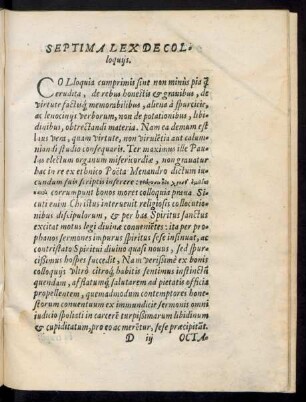 SEPTIMA LEX DE COL-
loquijs.
COLloquia cumprimis sint non minùs pia q̃
erudita, de rebus honestis & grauibus, de
virtute factisq; memorabilibus, aliena à spurcicie,
ac leuocinijs verborum, non de potationibus, libi-
dinibus, obtrectandi materia. Nam ea demum est
laus vera, quam virtute, non virulẽtia aut calum-
niandi studio consequaris. Ter maximus ille Pau-
lus electum organum misericordiæ, non grauatur
hac in re ex ethnico Poëta Menandro dictum iu-
cundum suis scriptis inserere:
corrumpunt bonos mores colloquia praua. Si-
cuti enim Christus interuenit religiosis collocutio-
nibus discipulorum, & per has Spiritus sanctus
excitat motus legi diuinæ conuenientes: ita per pro-
phanos sermones impurus spiritus sese insinuat, ac
contristato Spiritui diuino quasi nouus, sed spur-
cissimus hospes succedit. Nam verissimè ex bonis
colloquijs vltrò citroq; habitis sentimus instinctũ
quendam, afflatumq; salutarem ad pietatis officia
propellentem, quemadmodum contemptores hone-
storum conuentuum ex immundicie sermonis omni
iudicio spoliati in carcerẽ turpissimarum libidinum
& cupiditatum, pro eo ac merẽtur, sese præcipitãt.
D iij OCTA-